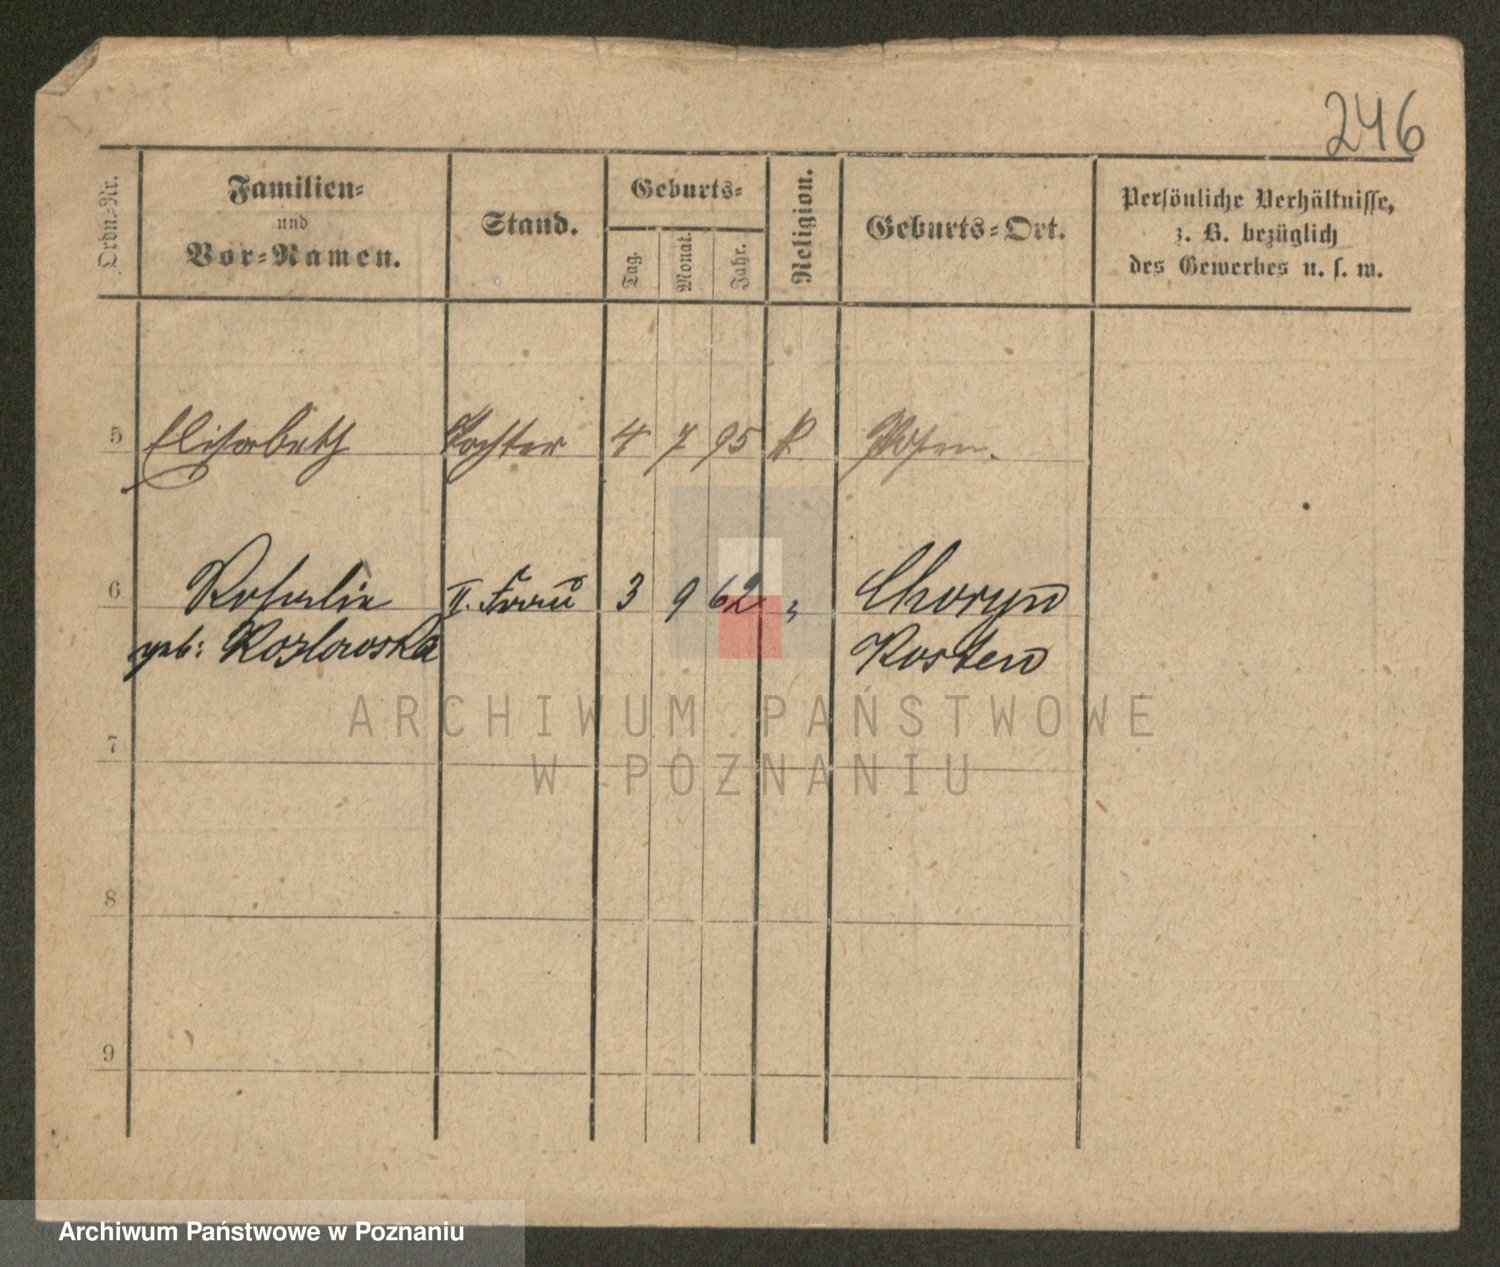 246
Ordn.-Nr.
Familien-
und
Vor-Namen.
Stand.
Geburts-
Tag.
Monat.
Jahr.
Religion.
Geburts-Ort.
Persönliche Verhältnisse,
z. B. bezüglich
des Gewerbes u. s. w.
5 Elisabeth Tochter 4 7 95 k. Posen.
6 Rosalie II. Frau 3 9 62 " Choryn
geb: Kozlowska Kosten
7
8
9
ARCHIWUM PAŃSTWOWE
W POZNANIU
Archiwum Państwowe w Poznaniu